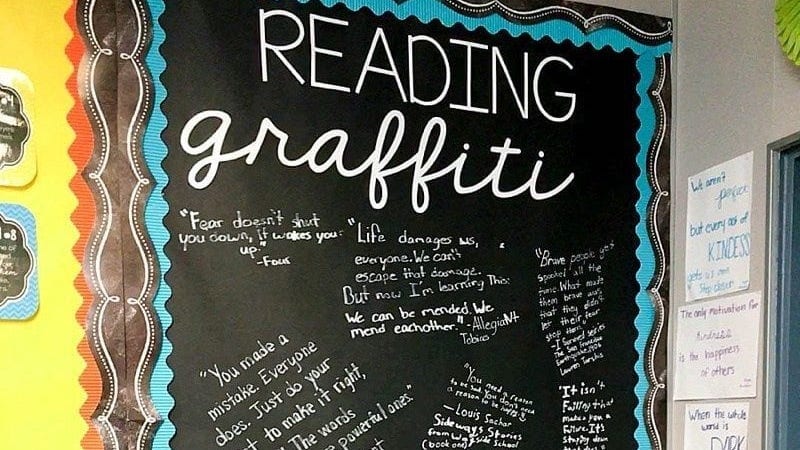 READING
graffiti
"Fear doesn't shut
you down, it wakes you
up."
-Four
"Life damages us,
everyone. We can't
escape that damage.
But now I'm learning This:
We can be mended. We
mend eachother." -Allegiant
Tobias
"Brave people get
spooked all the
time. What made
them brave was
that they didn't
let their fear
stop them."
I Survived series
The San Francisco
Earthquake, 1906
Lauren Tarshis
"You made a
mistake. Everyone
does. Just do your
to make it right,
The words
powerful ones."
"You need a reason
to be sad. You don't need
a reason to be happy."
- Louis Sachar
Sideways Stories
from Wayside School
(book one)
"It isn't
Falling that
makes you a
Failure. It's
Staying down
We aren't perfect
but every act of
KINDNESS
gets us one
step closer
The only motivation for
Kindness
is the happiness
of others
When the whole
world is
DARK